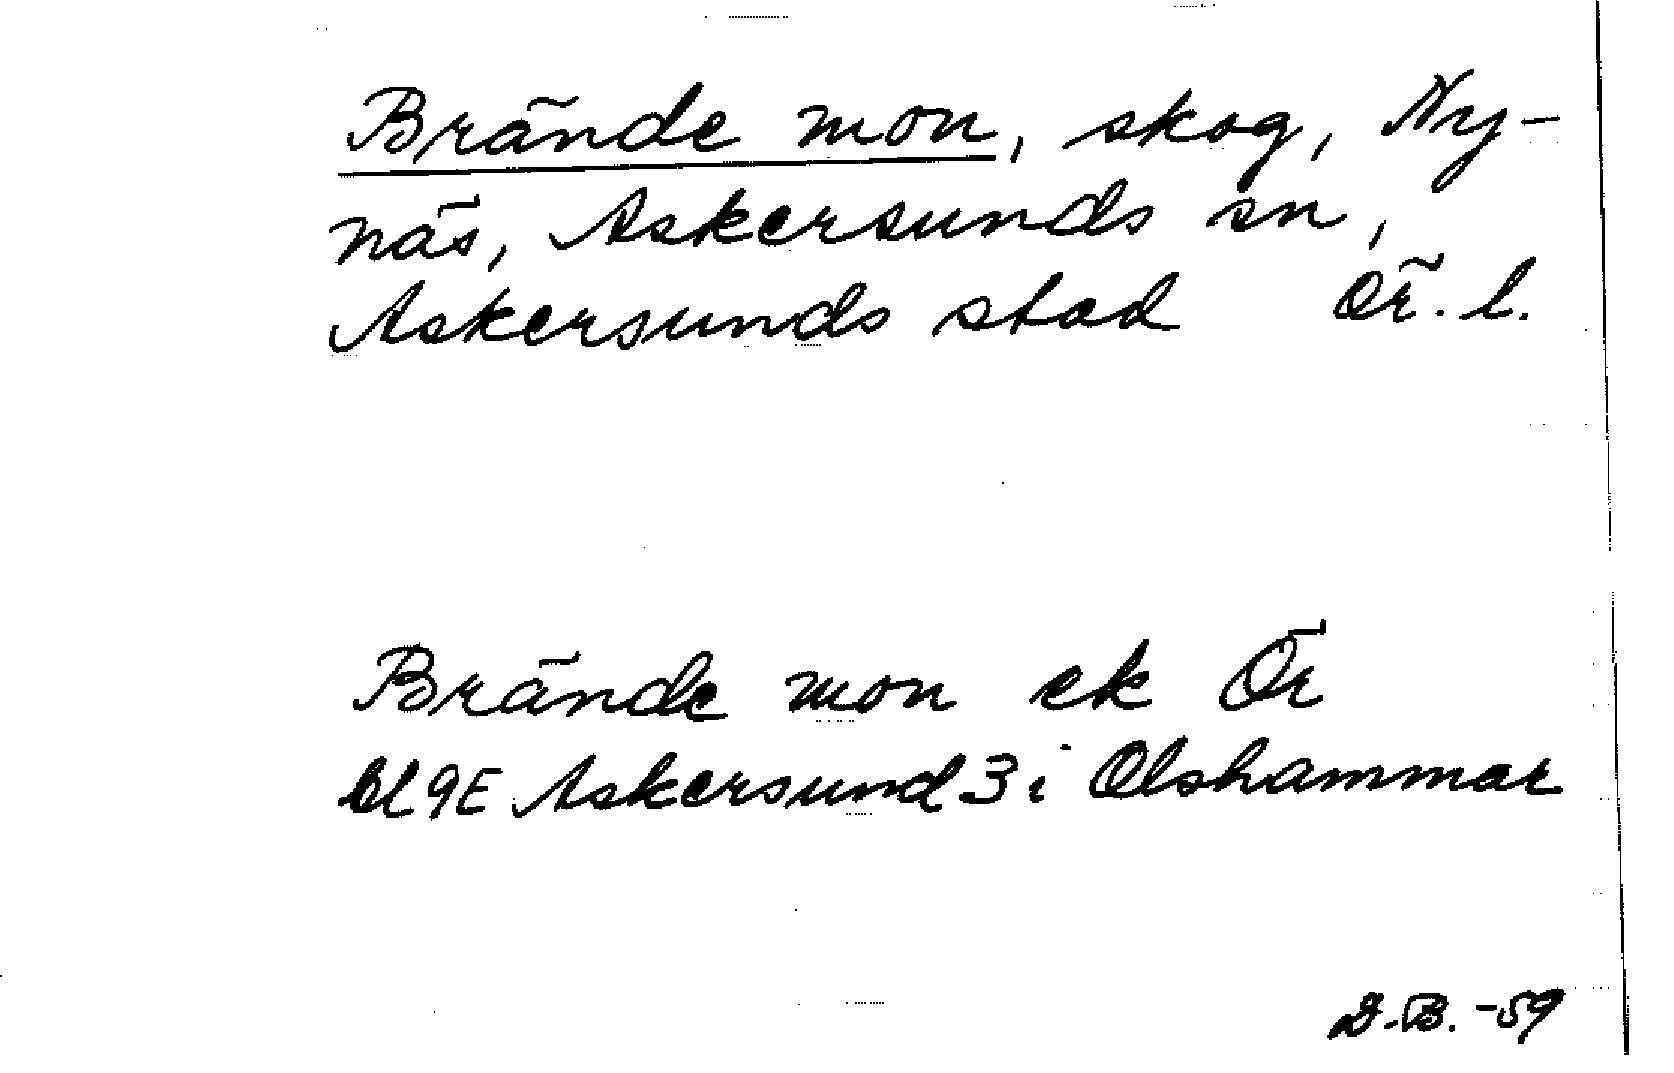 Brände mon, skog, Ny-
näs, Askersunds sn,
Askersunds stad Ör. l.
Brände mon ek Ör
bl 9E Askersund 3 i Olshammar
D.B. -59